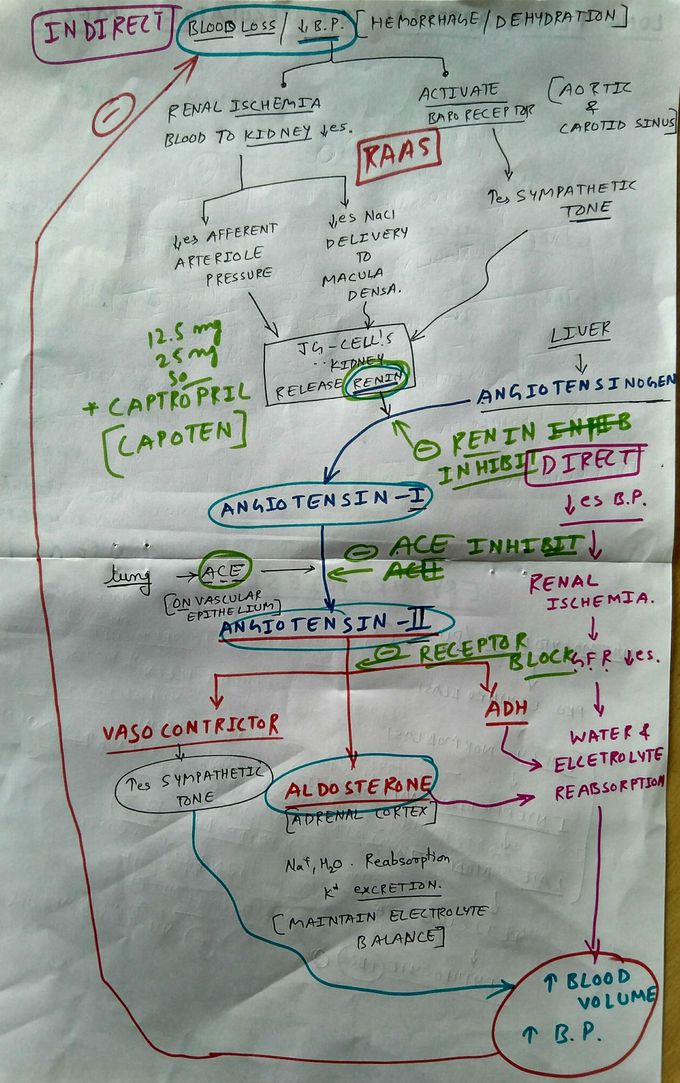 INDIRECT
BLOOD LOSS / ↓ B.P. [HEMORRHAGE/DEHYDRATION]
RENAL ISCHEMIA
BLOOD TO KIDNEY ↓es.
ACTIVATE
BAPORECEPTOR
[AORTIC
&
CAROTID SINUS]
RAAS
↓es AFFERENT
ARTERIOLE
PRESSURE
↓es NaCl
DELIVERY
TO
MACULA
DENSA.
↑es SYMPATHETIC
TONE
12.5 mg
25 mg
50
* CAPTROPRIL
[CAPOTEN]
JG-CELL'S
KIDNEY
RELEASE RENIN
LIVER
ANGIOTENSINOGEN
⊖ RENIN INHEB
INHIBIT
DIRECT
↓es B.P.
ANGIOTENSIN-I
lung → ACE
[ON VASCULAR
EPITHELIUM]
⊖ ACE INHIBIT
ACE
RENAL
ISCHEMIA.
ANGIOTENSIN-II
⊖ RECEPTOR
BLOCK
GFR ↓es.
VASO CONTRICTOR
↑es SYMPATHETIC
TONE
ADH
WATER &
ELCETROLYTE
REABSORPTION
ALDOSTERONE
[ADRENAL CORTEX]
Na⁺, H₂O. Reabsorption
K⁺ EXCRETION.
[MAINTAIN ELECTROLYTE
BALANCE]
↑ BLOOD
VOLUME
↑ B.P.
⊖